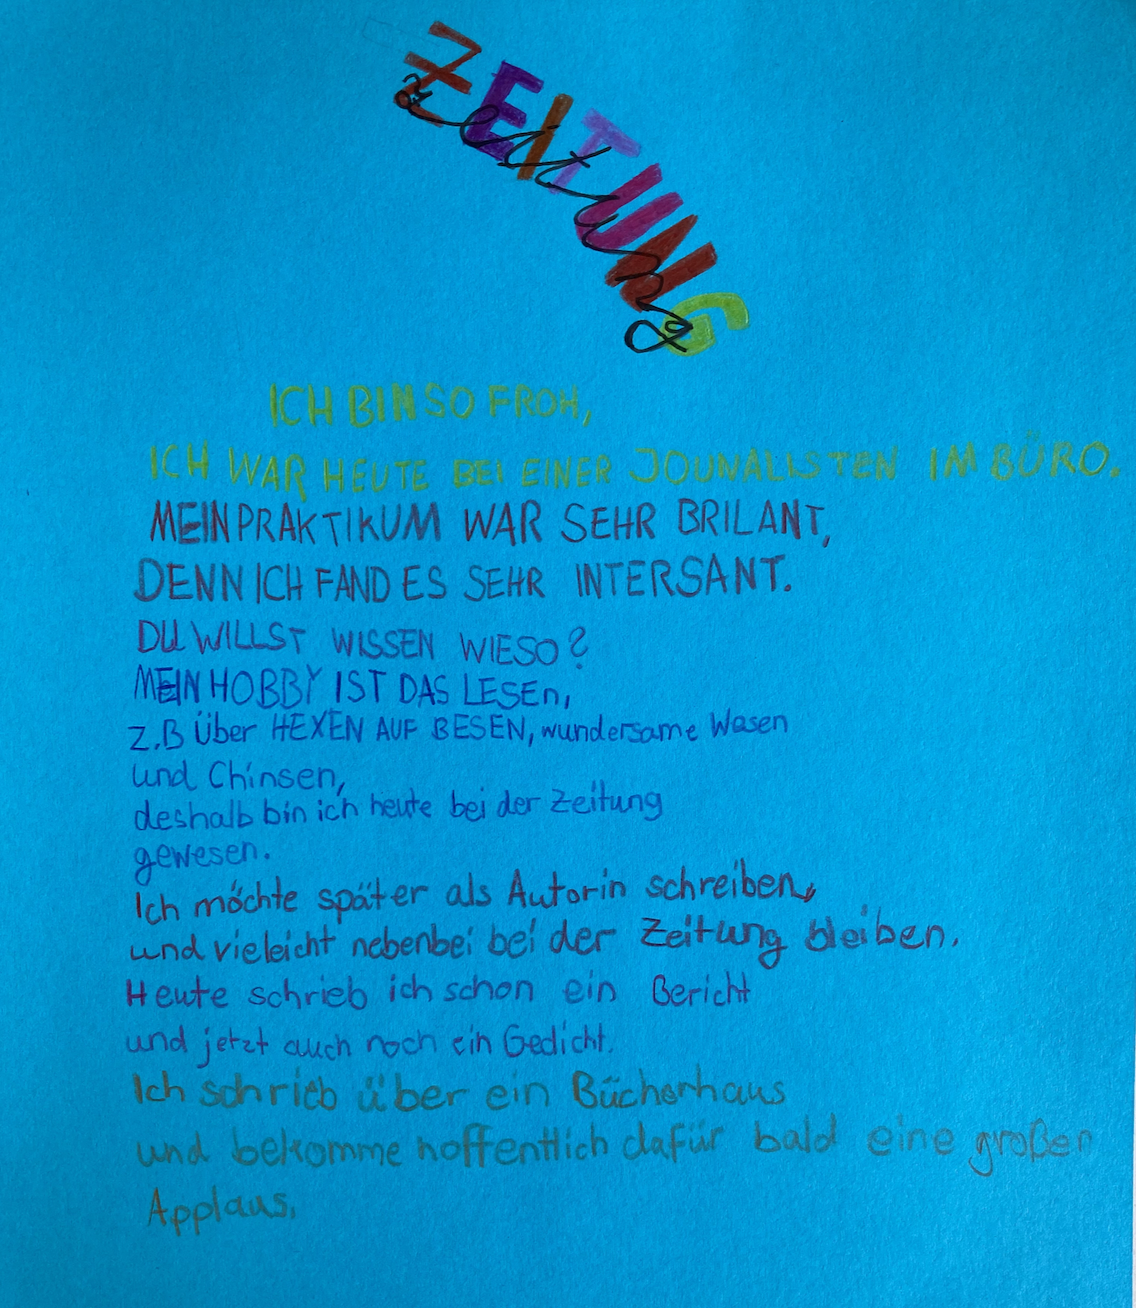 ZEITUNG
Zeitung
ICH BIN SO FROH,
ICH WAR HEUTE BEI EINER JOUNALISTEN IM BÜRO.
MEIN PRAKTIKUM WAR SEHR BRILANT,
DENN ICH FAND ES SEHR INTERSANT.
DU WILLST WISSEN WIESO?
MEIN HOBBY IST DAS LESEn,
z.B Über HEXEN AUF BESEN, wundersame Wasen
und Chinsen,
deshalb bin ich heute bei der Zeitung
gewesen.
Ich möchte später als Autorin schreiben,
und vieleicht nebenbei bei der Zeitung bleiben.
Heute schrieb ich schon ein Bericht
und jetzt auch noch ein Gedicht.
Ich schrieb über ein Bücherhaus
und bekomme hoffentlich dafür bald eine großen
Applaus.